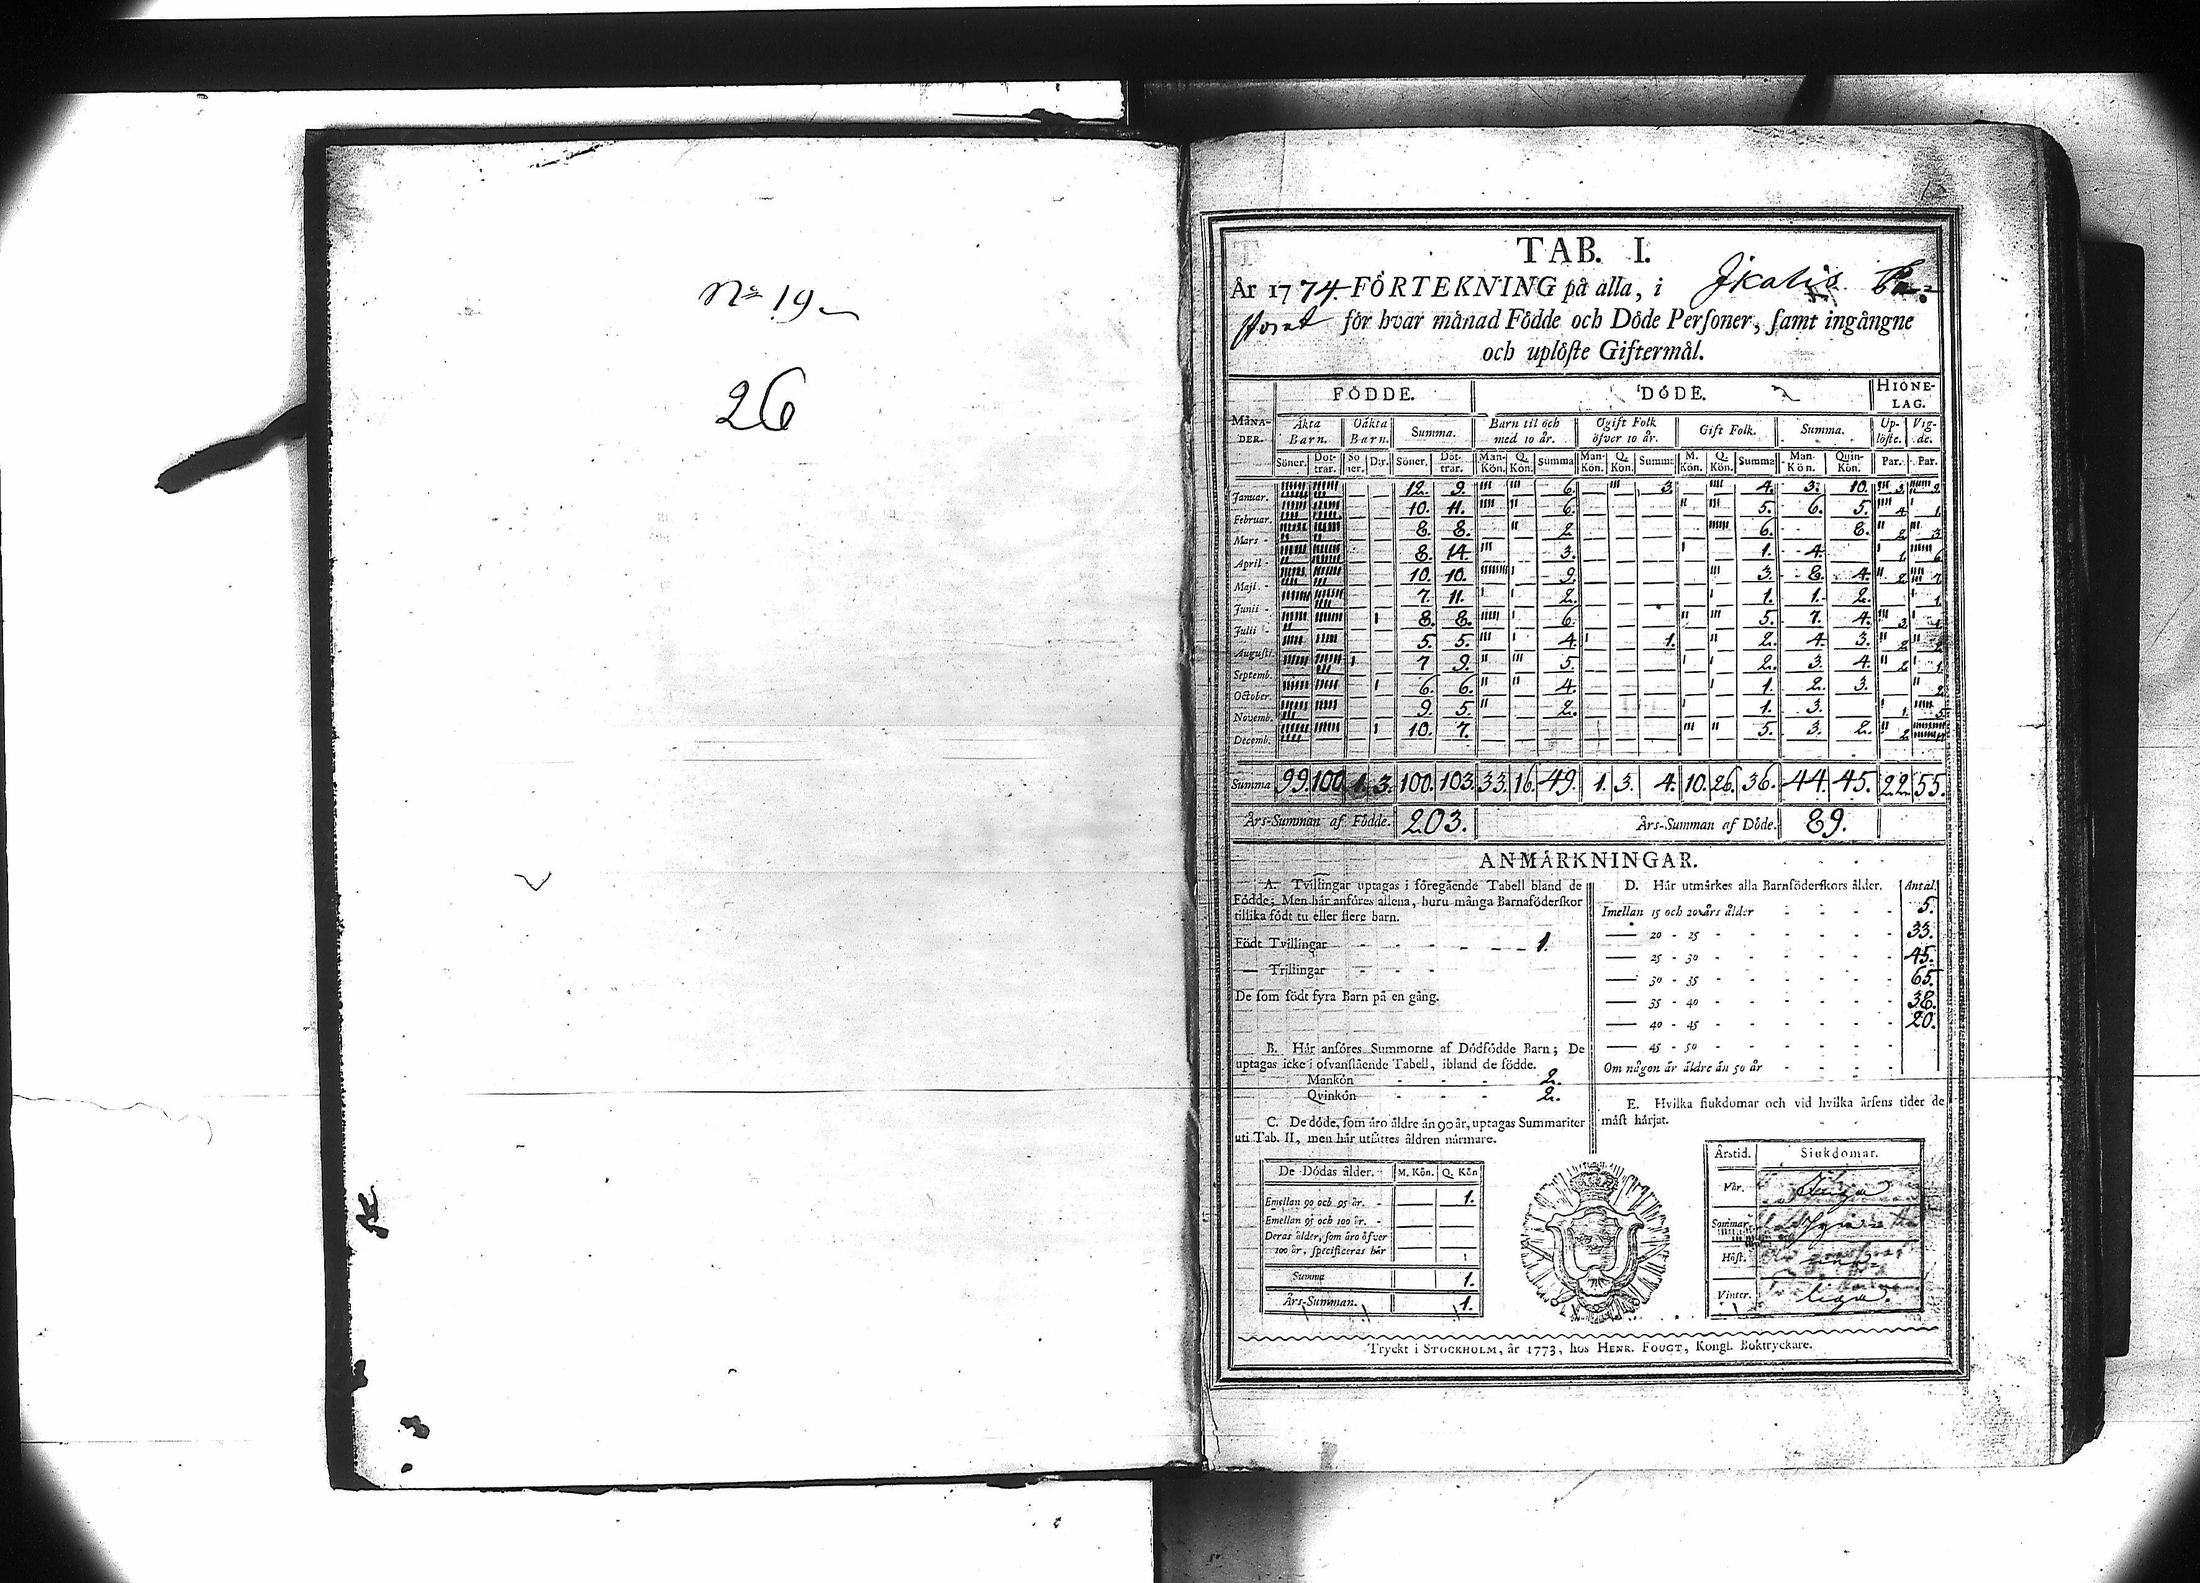 No 19
26
TAB. I.
År 1774. FÖRTEKNING på alla, i Ikalis Pa-
storat för hvar månad Födde och Döde Personer, samt ingångne
och uplöste Giftermål.
FÖDDE. DÖDE. HIONE-
LAG.
MÅNA-
DER. Äkta Barn. Oäkta Barn. Summa. Barn til och med 10 år. Ogift Folk öfver 10 år. Gift Folk. Summa. Up-löste. Vig-de.
Söner. Dot-trar. So ner. D:r. Söner. Dot-trar. Man-Kön. Q. Kön. Summa Man-Kön. Q. Kön. Summa M. Kön. Q. Kön. Summa Man-Kön. Quin-Kön. Par. Par.
Januar. 12. 9. 6. 3. 4. 3. 10. 3. 9.
Februar. 10. 11. 6. 5. 6. 5. 4. 1.
Mars - 8. 8. 2. 6. 8. 2. 3.
April - 8. 14. 3. 1. 4. 1. 6.
Maji - 10. 10. 9. 3. 8. 4. 2. 7.
Junii - 7. 11. 2. 1. 1. 2. 1.
Julii - 8. 8. 6. 5. 7. 4. 3. 1.
Augusti. 5. 5. 4. 1. 2. 4. 3. 2. 2.
Septemb. 7 9. 5. 2. 3. 4. 2. 1.
October. 6. 6. 4. 1. 2. 3. 2.
Novemb. 9. 5. 2. 1. 3. 1. 5.
Decemb. 10. 7. 5. 3. 2. 2.
Summa 99. 100. 1. 3. 100. 103. 33. 16. 49. 1. 3. 4. 10. 26. 36. 44. 45. 22. 55.
Års-Summan af Födde. 203. Års-Summan af Döde. 89.
ANMÄRKNINGAR.
A. Tvillingar uptagas i föregående Tabell bland de
Födde; Men här anföres allena, huru många Barnaföderskor
tillika födt tu eller flere barn.
Födt Tvillingar - - - - - 1.
— Trillingar - - -
De som födt fyra Barn på en gång.
B. Här anföres Summorne af Dödfödde Barn; De
uptagas icke i ofvanstående Tabell, ibland de födde.
Mankön - - - 2.
Qvinkön - - - 2.
C. De döde, som äro äldre än 90 år, uptagas Summariter
uti Tab. II, men här utsättes åldren närmare.
De Dödas ålder. M. Kön. Q. Kön
Emellan 90 och 95 år. - 1.
Emellan 95 och 100 år. -
Deras ålder, som äro öfver
100 år, specificeras här
Summa 1.
Års-Summan. 1.
D. Här utmärkes alla Barnföderskors ålder. Antal.
Imellan 15 och 20 års ålder - - - - 5.
— 20 - 25 - - - - 33.
— 25 - 30 - - - - 45.
— 30 - 35 - - - - 65.
— 35 - 40 - - - - 38.
— 40 - 45 - - - - 20.
— 45 - 50 - - - -
Om någon är äldre än 50 år - - - -
E. Hvilka siukdomar och vid hvilka årsens tider de
mäst härjat.
Årstid. Siukdomar.
Vår.
Sommar.
Höst.
Vinter.
Tryckt i STOCKHOLM, år 1773, hos HENR. FOUGT, Kongl. Boktryckare.